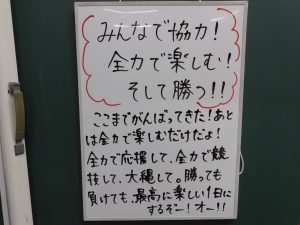 みんなで協力！
全力で楽しむ！
そして勝つ！！
ここまでがんばってきた！あと
は全力で楽しむだけだよ！
全力で応援して、全力で競
技して、大縄して。勝っても
負けても、最高に楽しい1日に
するぞー！オー！！